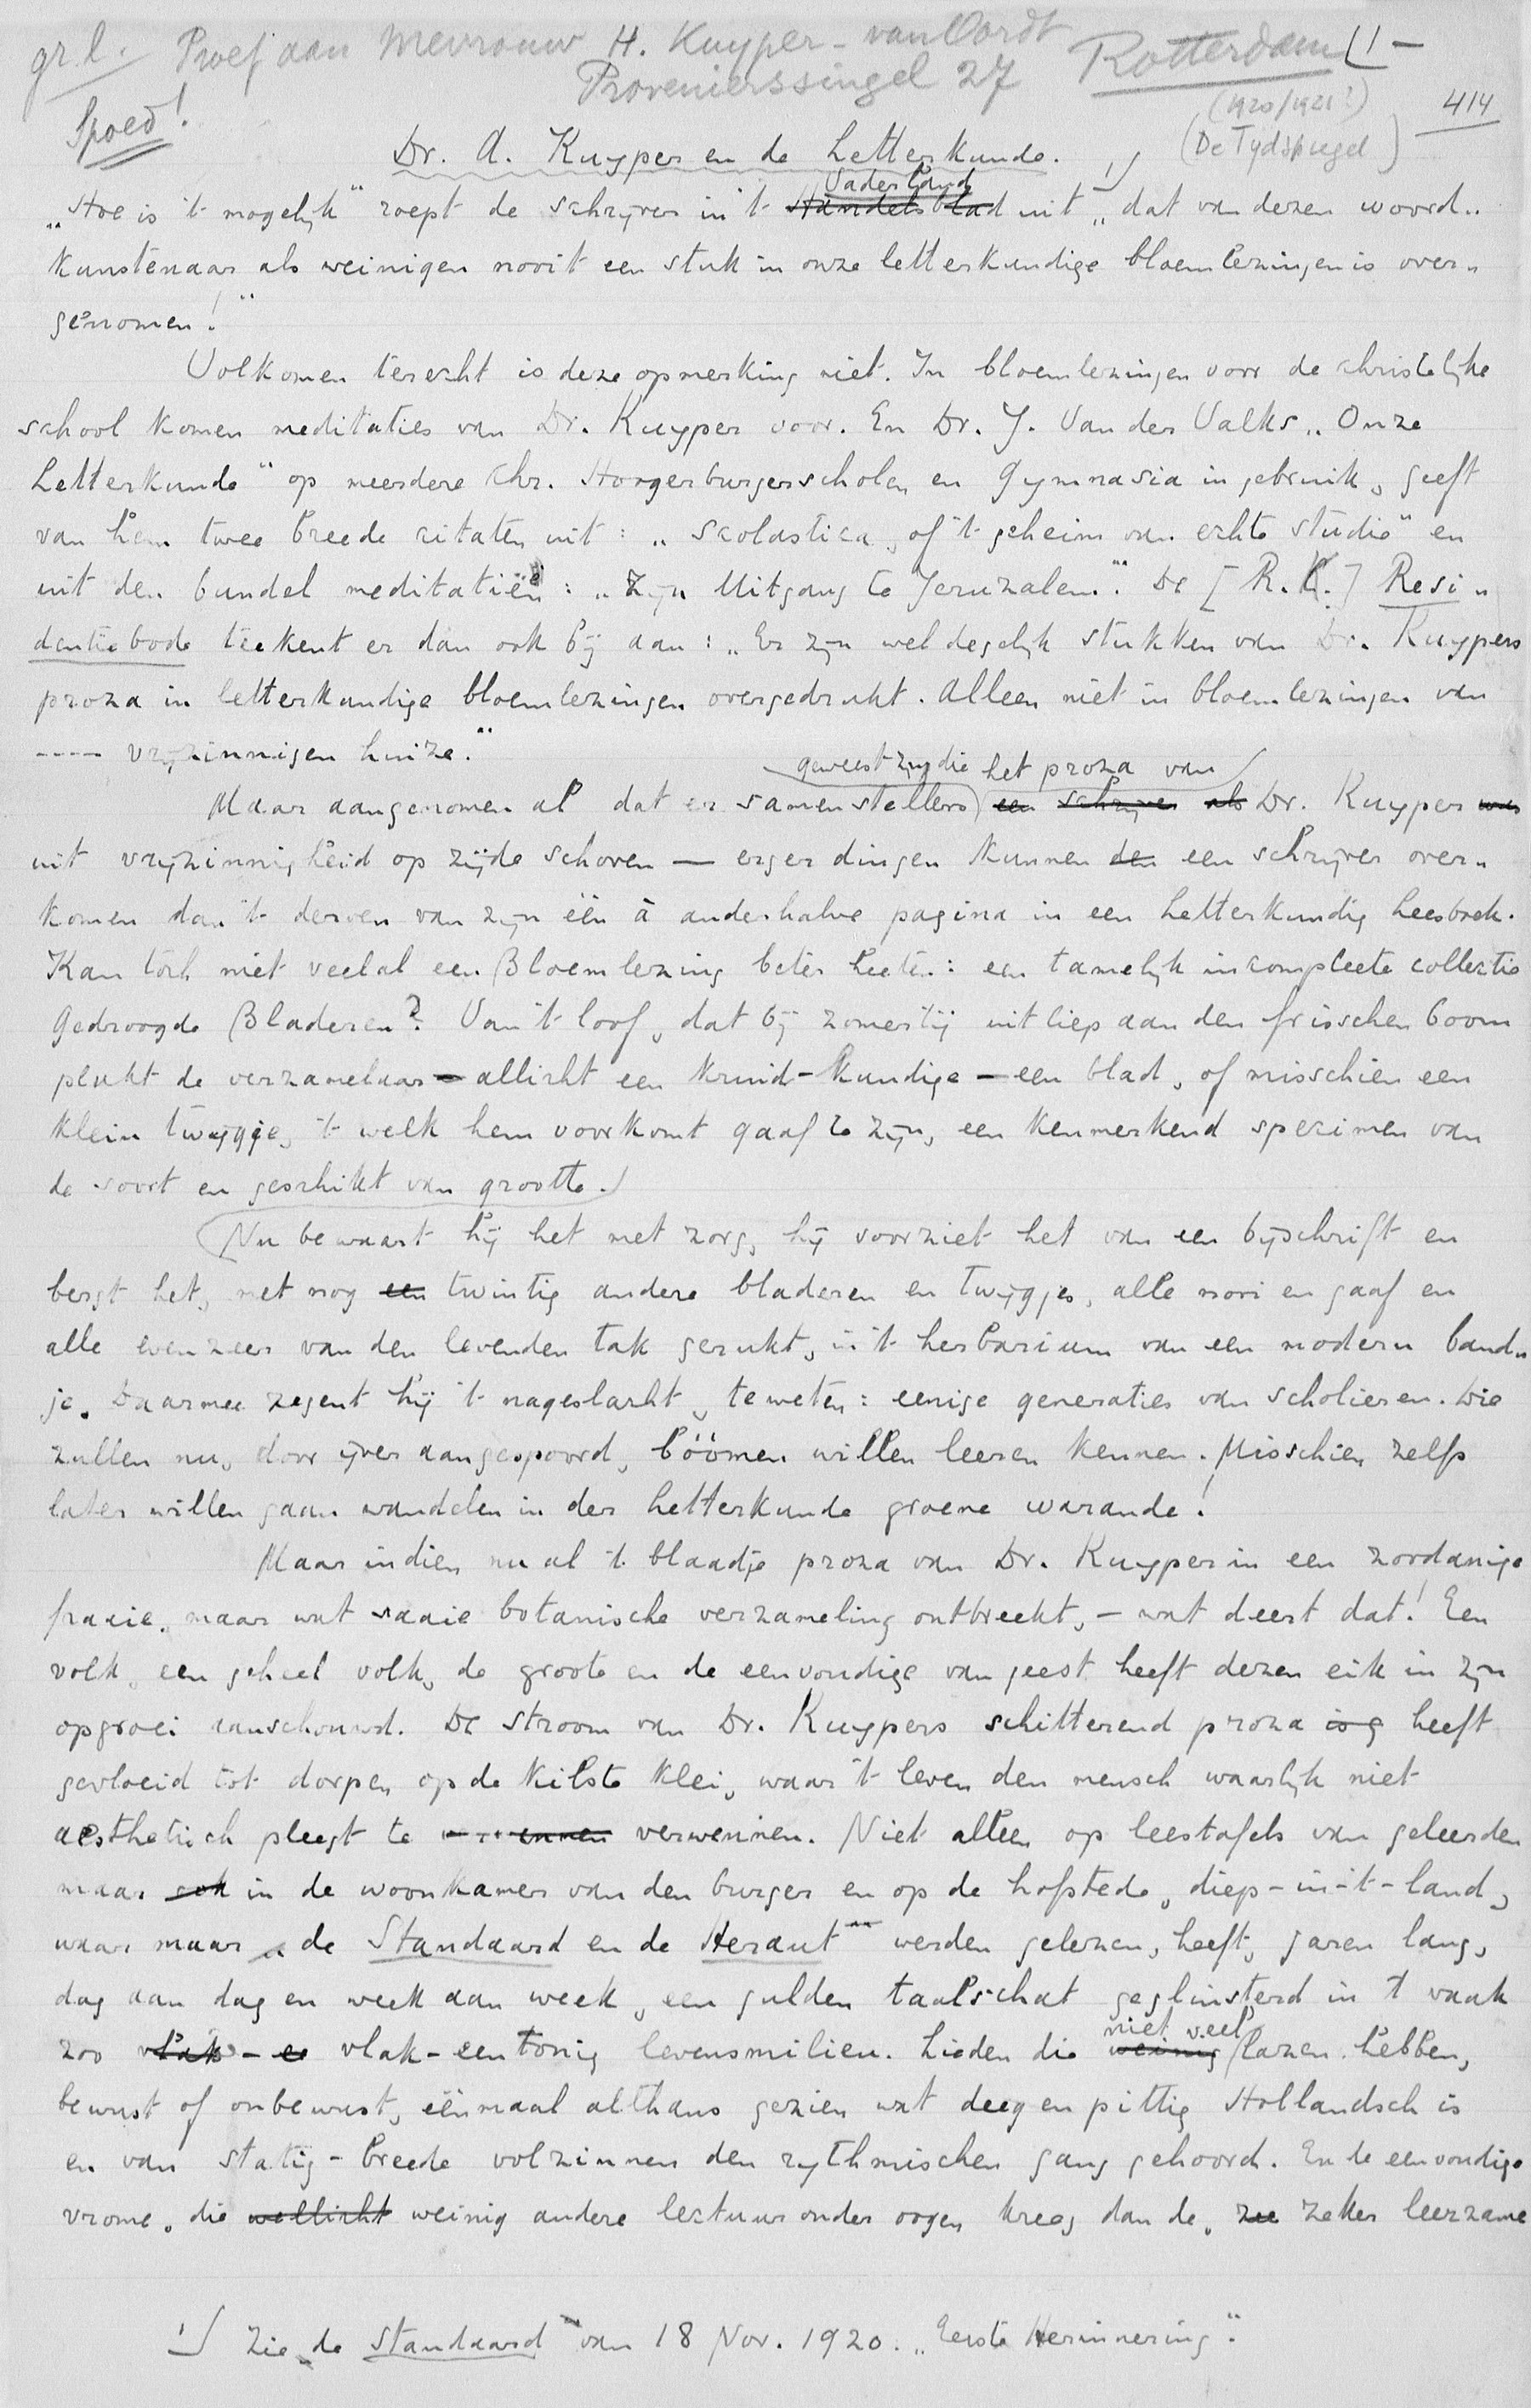 gr. l. Proef aan Mevrouw H. Kuyper-van Oordt
Provenierssingel 27 Rotterdam 1 -
Spoed! (1920/1921?) 414
(De Tydspiegel)
Dr. A. Kuyper en de Letterkunde. 1)
Vaderland
„Hoe is 't mogelijk" roept de schrijver in 't Handelsblad uit „dat van dezen woord-
kunstenaar als weinigen nooit een stuk in onze letterkundige bloemlezingen is over-
genomen!"
Volkomen terecht is deze opmerking niet. In bloemlezingen voor de christelijke
school komen meditaties van Dr. Kuyper voor. En Dr. J. Van der Valks „Onze
Letterkunde" op meerdere Chr. Hoogerburgerscholen en Gymnasia in gebruik, geeft
van hem twee breede citaten uit: „Scolastica, of 't geheim van echte studie" en
uit den bundel meditatiën: „Zijn Uitgang te Jeruzalem." De [R.K.] Resi-
dentiebode teekent er dan ook bij aan: „Er zijn wel degelijk stukken van Dr. Kuypers
proza in letterkundige bloemlezingen overgedrukt. Alleen niet in bloemlezingen van
---- vrijzinnigen huize."
geweest zijn die het proza van
Maar aangenomen al dat er samenstellers een schrijver als Dr. Kuyper
uit vrijzinnigheid op zijde schoven — erger dingen kunnen den een schrijver over-
komen dan 't derven van zijn één à anderhalve pagina in een Letterkundig Leesboek.
Kan toch niet veelal een Bloemlezing beter heeten: een tamelijk incompleete collectie
Gedroogde Bladeren? Van 't loof, dat bij zomertij uitliep aan den frisschen boom
plukt de verzamelaar — allicht een kruid-kundige — een blad, of misschien een
klein twijgje, 't welk hem voorkomt gaaf te zijn, een kenmerkend specimen van
de soort en geschikt van grootte.
Nu bewaart hij het met zorg, hij voorziet het van een bijschrift en
bergt het, met nog een twintig andere bladeren en twijgjes, alle mooi en gaaf en
alle evenzeer van den levenden tak gerukt, in 't herbarium van een modern band-
je. Daarmee zegent hij 't nageslacht, te weten: eenige generaties van scholieren. Die
zullen nu, door ijver aangespoord, bóómen willen leeren kennen. Misschien zelfs
later willen gaan wandelen in der Letterkunde groene warande!
Maar indien nu al 't blaadje proza van Dr. Kuyper in een zoodanige
fraaie, maar wat saaie botanische verzameling ontbreekt, — wat deert dat! Een
volk, een geheel volk, de groote en de eenvoudige van geest heeft dezen eik in zijn
opgroei aanschouwd. De stroom van Dr. Kuypers schitterend proza is g heeft
gevloeid tot dorpen op de kilste klei, waar 't leven den mensch waarlijk niet
aesthetisch pleegt te verwennen. Niet alleen op leestafels van geleerden
maar ook in de woonkamer van den burger en op de hofstede, diep-in-'t-land,
waar maar „de Standaard en de Heraut" werden gelezen, heeft, jaren lang,
dag aan dag en week aan week, een gulden taalschat geglinsterd in 't vaak
niet veel
zoo vlak - ee vlak-eentonig levensmilieu. Lieden die weinig lazen hebben,
bewust of onbewust, éénmaal althans gezien wat deeg en pittig Hollandsch is
en van statig-breede volzinnen den rythmischen gang gehoord. En de eenvoudige
vrome, die wellicht weinig andere lectuur onder oogen kreeg dan de, ze zeker leerzame
1) Zie „de Standaard" van 18 Nov. 1920. „Eerste Herinnering".